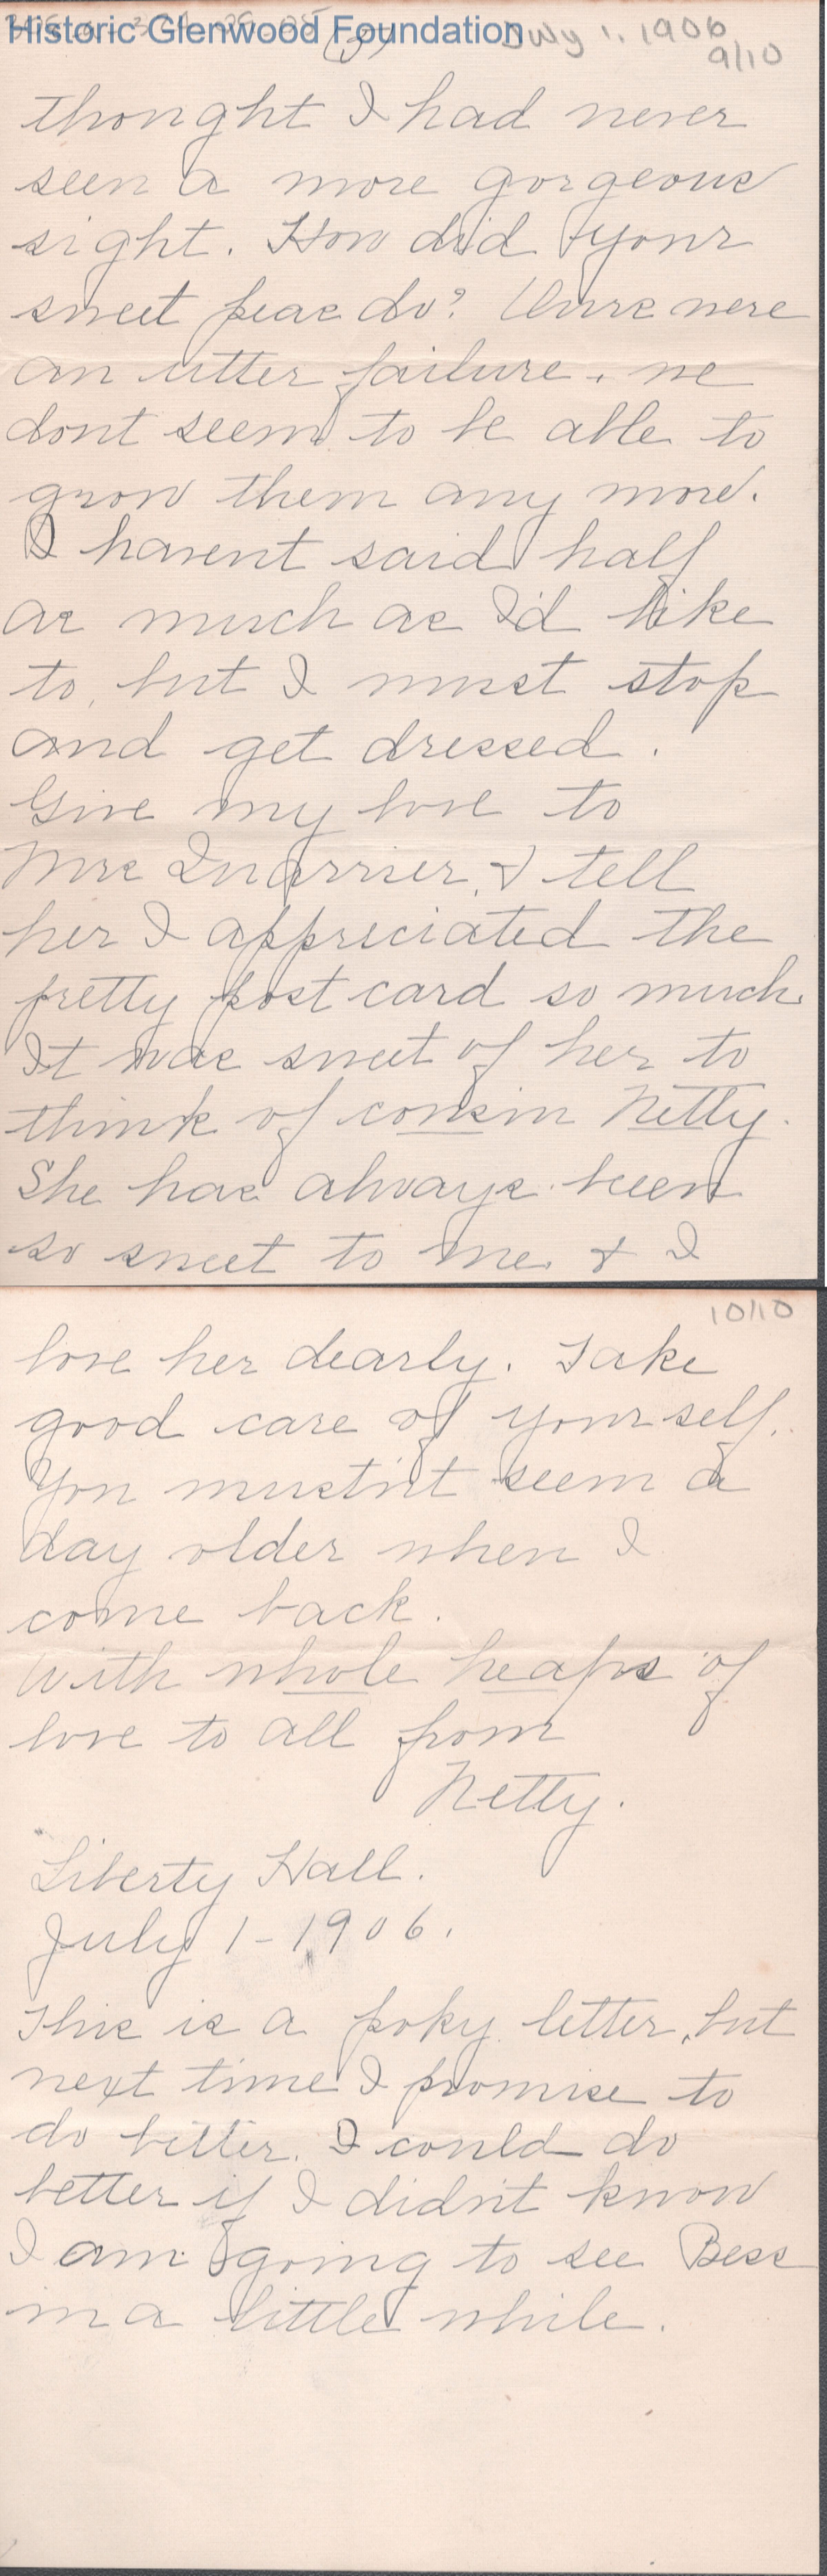 Historic Glenwood Foundation
(5)
July 1, 1906
9/10
thought I had never
seen a more gorgeous
sight. How did your
sweet peas do? Ours were
an utter failure. we
dont seem to be able to
grow them any more.
I havent said half
as much as I'd like
to, but I must stop
and get dressed.
Give my love to
Mrs Quarrier, & tell
her I appreciated the
pretty post card so much.
It was sweet of her to
think of cousin Netty.
She has always been
so sweet to me, & I
10/10
love her dearly. Take
good care of yourself.
You mustn't seem a
day older when I
come back.
With whole heaps of
love to all from
Netty.
Liberty Hall.
July 1 - 1906.
This is a poky letter, but
next time I promise to
do better. I could do
better if I didn't know
I am going to see Bess
in a little while.